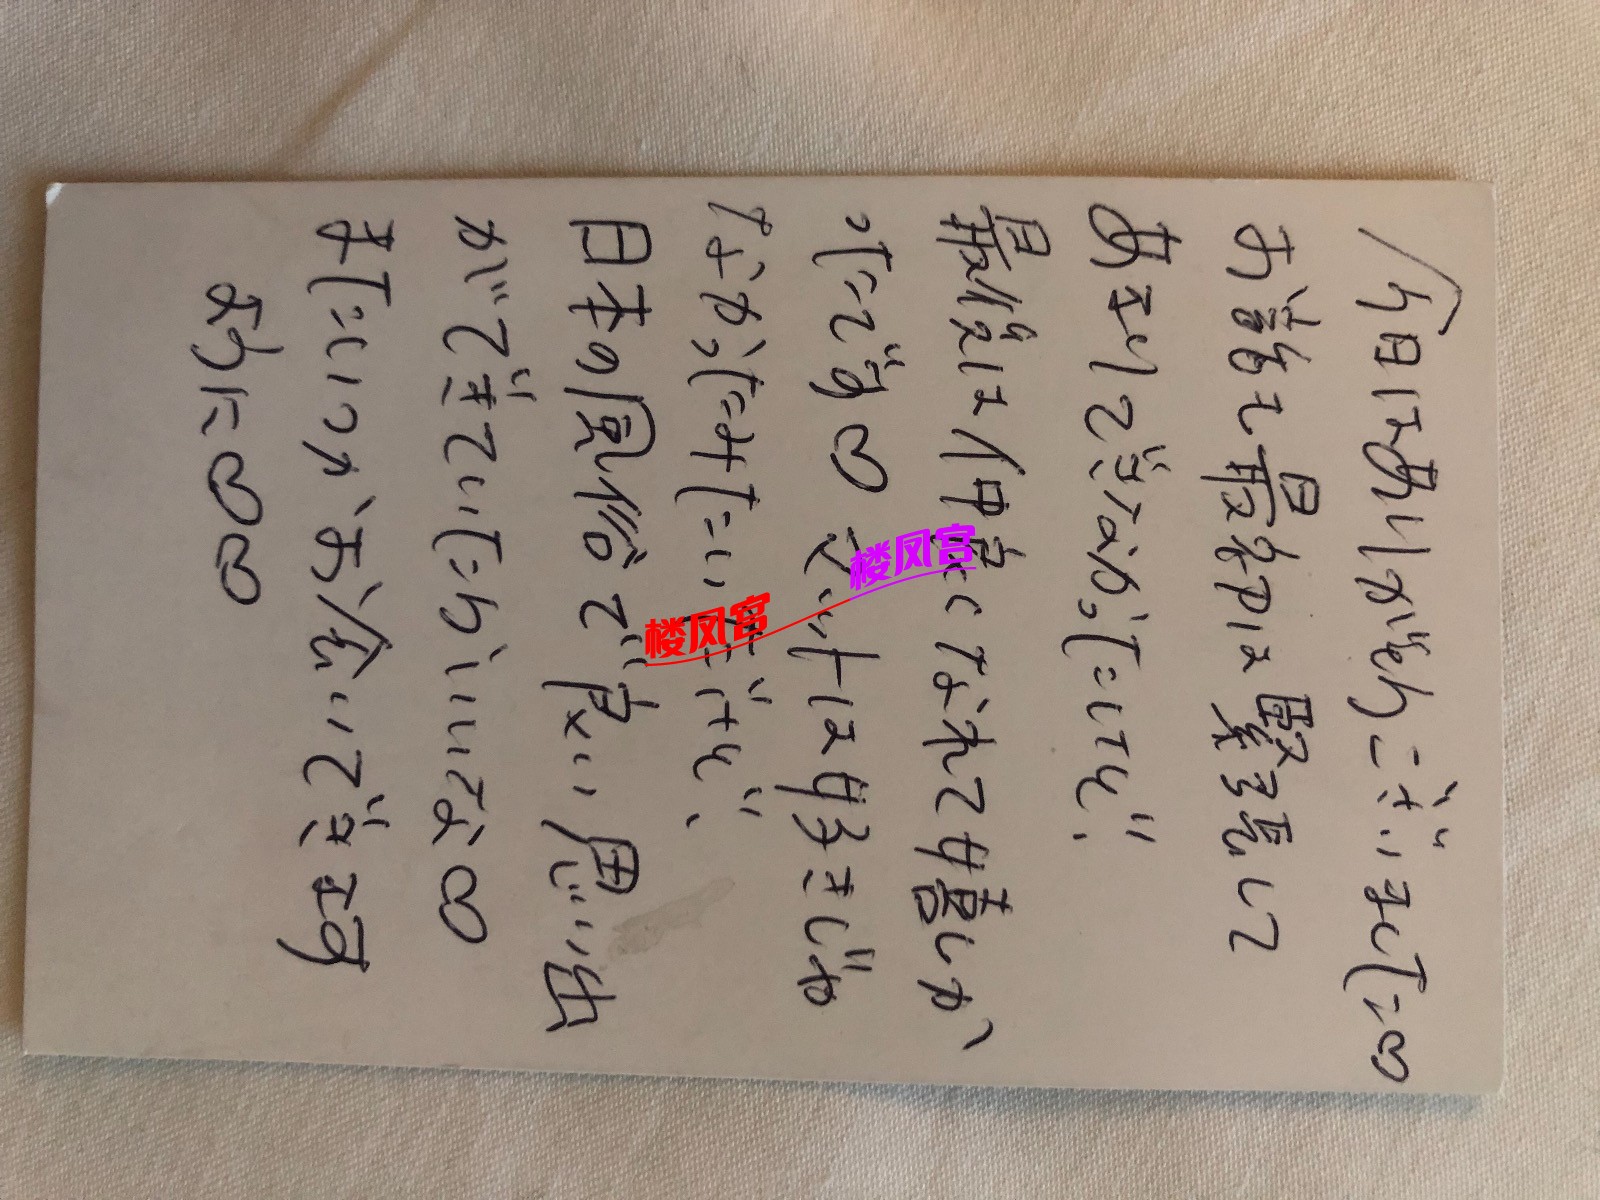 今日はありがとうございました♡
お話も最初は緊張して
あまりできなかったけど、
最後は仲良くなれて嬉しか
ったです♡ マットは好きじゃ
なかったみたいだけど、
日本の風俗で良い思い出
ができていたらいいな♡
またいつかお会いできます
ように♡♡
楼凤宫
楼凤宫